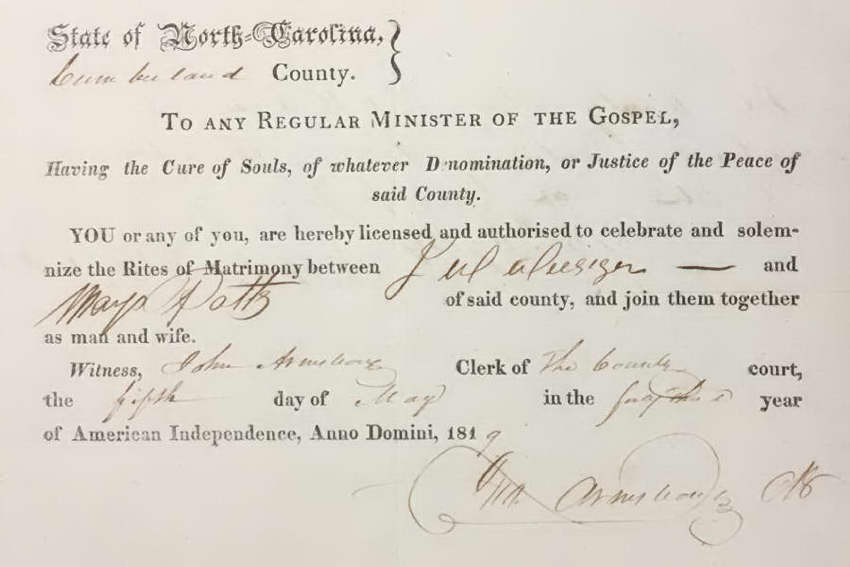 State of North-Carolina,
Cumberland County.
TO ANY REGULAR MINISTER OF THE GOSPEL,
Having the Cure of Souls, of whatever D nomination, or Justice of the Peace of
said County.
YOU or any of you, are hereby licensed and authorised to celebrate and solem-
nize the Rites of Matrimony between — and
Mary Potts of said county, and join them together
as man and wife.
Witness, John Armstrong Clerk of the County court,
the fifth day of May in the forty third year
of American Independence, Anno Domini, 1819
Jno. Armstrong Clk